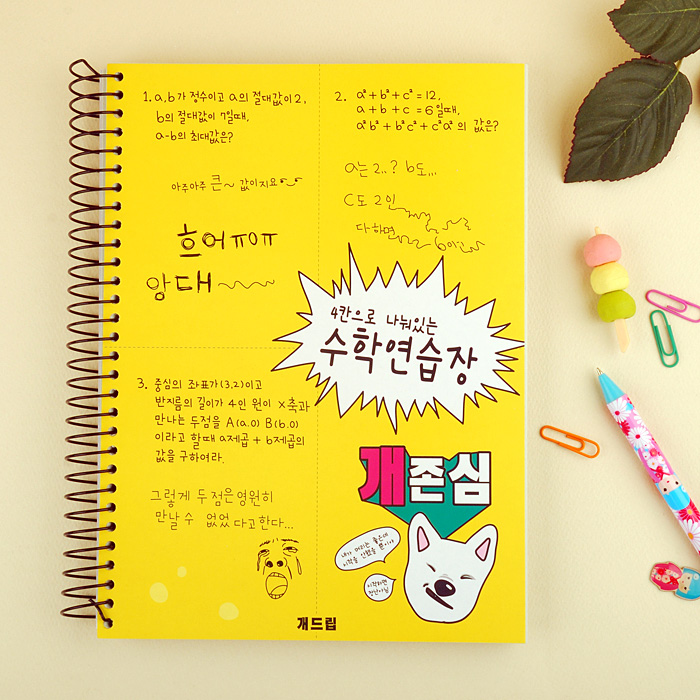 1. a,b가 정수이고 a의 절대값이 2,
b의 절대값이 7일때,
a-b의 최대값은?
아주아주 큰~ 값이지요
흐어ㅠㅇㅠ
앙대~~~
2. a²+b²+c²=12,
a+b+c=6일때,
a²b²+b²c²+c²a²의 값은?
a는 2..? b도...
c도 2인
다하면 6이고
4칸으로 나눠있는
수학연습장
3. 중심의 좌표가(3,2)이고
반지름의 길이가 4인 원이 x축과
만나는 두점을 A(a,0) B(b,0)
이라고 할때 a제곱 + b제곱의
값을 구하여라.
그렇게 두 점은 영원히
만날 수 없었다고한다...
개존심
내가 머리는 좋은데
이걸을 안했을 뿐이야
시작하면
장난아님
개드립